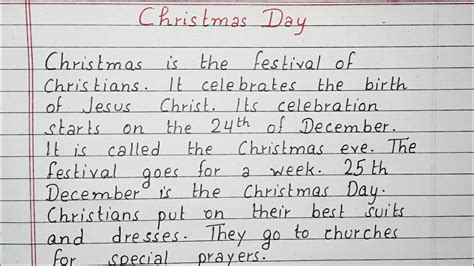 Christmas Day
Christmas is the festival of
Christians. It celebrates the birth
of Jesus Christ. Its celebration
starts on the 24th of December.
It is called the Christmas eve. The
festival goes for a week. 25th
December is the Christmas Day.
Christians put on their best suits
and dresses. They go to churches
for special prayers.